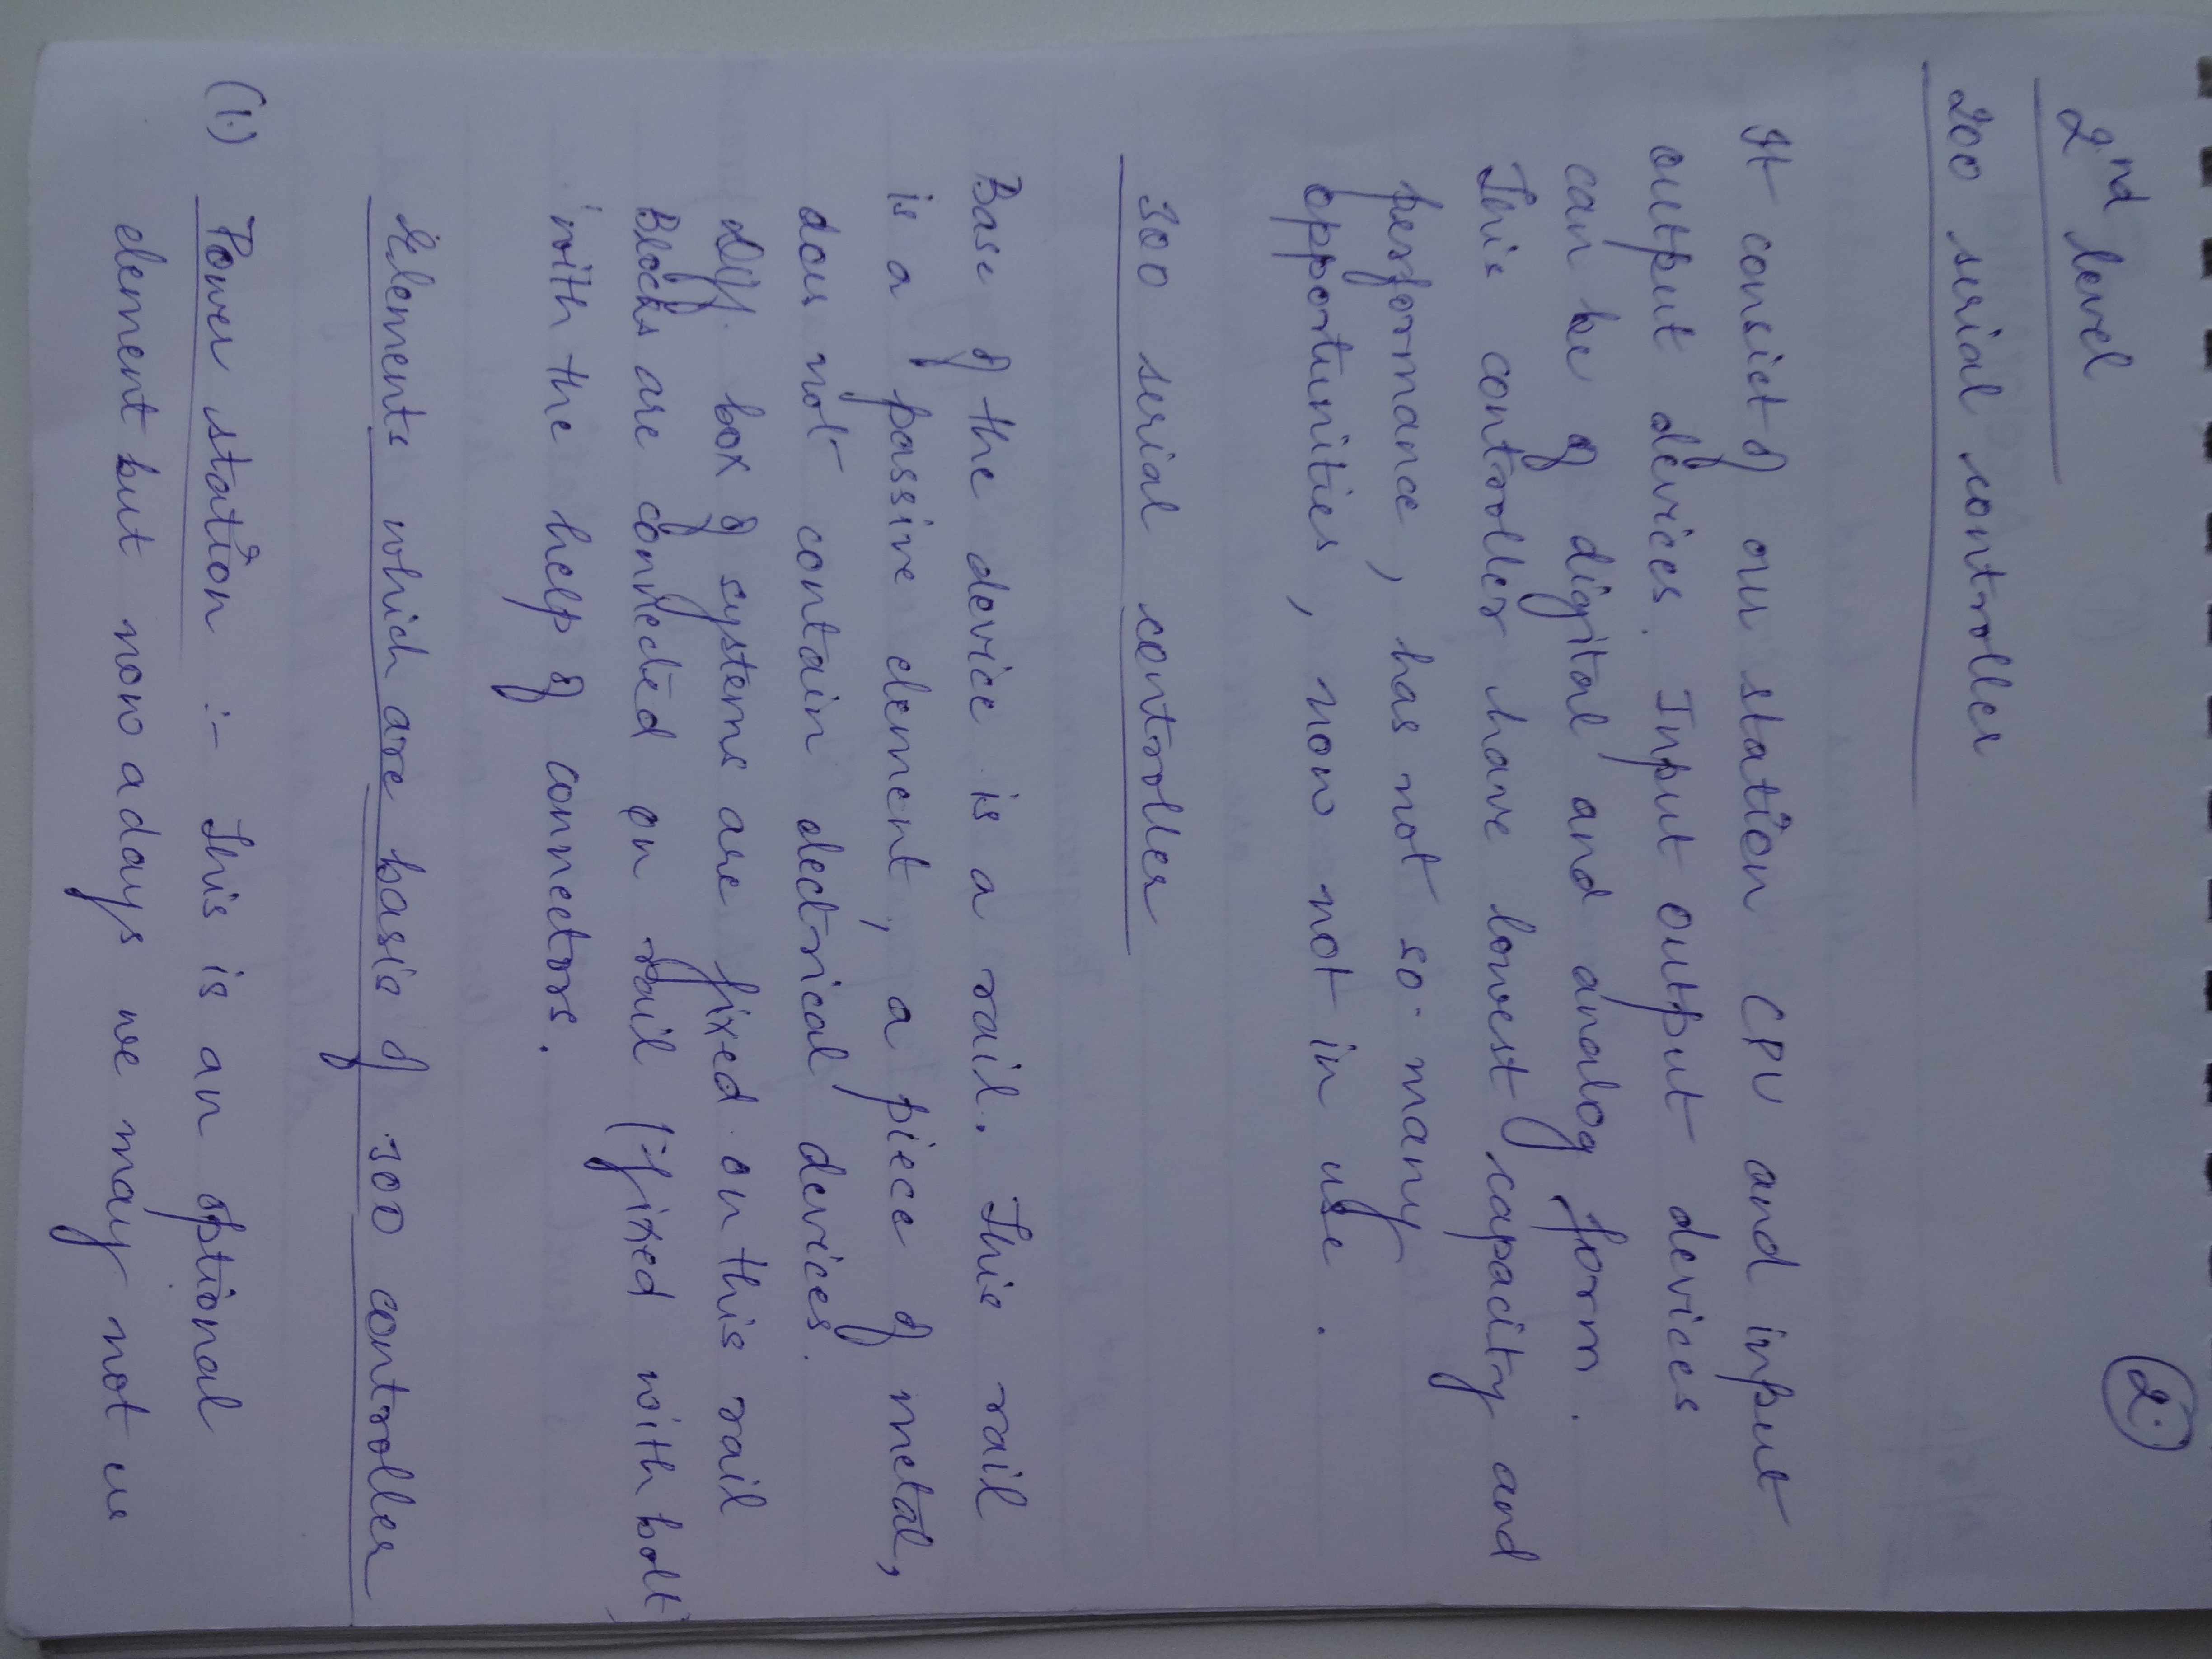 2.
2nd level
200 serial controller
It consist of ou station CPU and input
output devices. Input output devices
can be of digital and analog form.
This controller have lowest capacity and
performance, has not so many
opportunities, now not in use.
300 serial controller
Base of the device is a rail. This rail
is a passive element, a piece of metal,
does not contain electrical devices.
Diff. box of systems are fixed on this rail
Blocks are connected on rail (fixed with bolt)
with the help of connectors.
Elements which are basis of 300 controller
(1.) Power station :- This is an optional
element but now adays we may not us